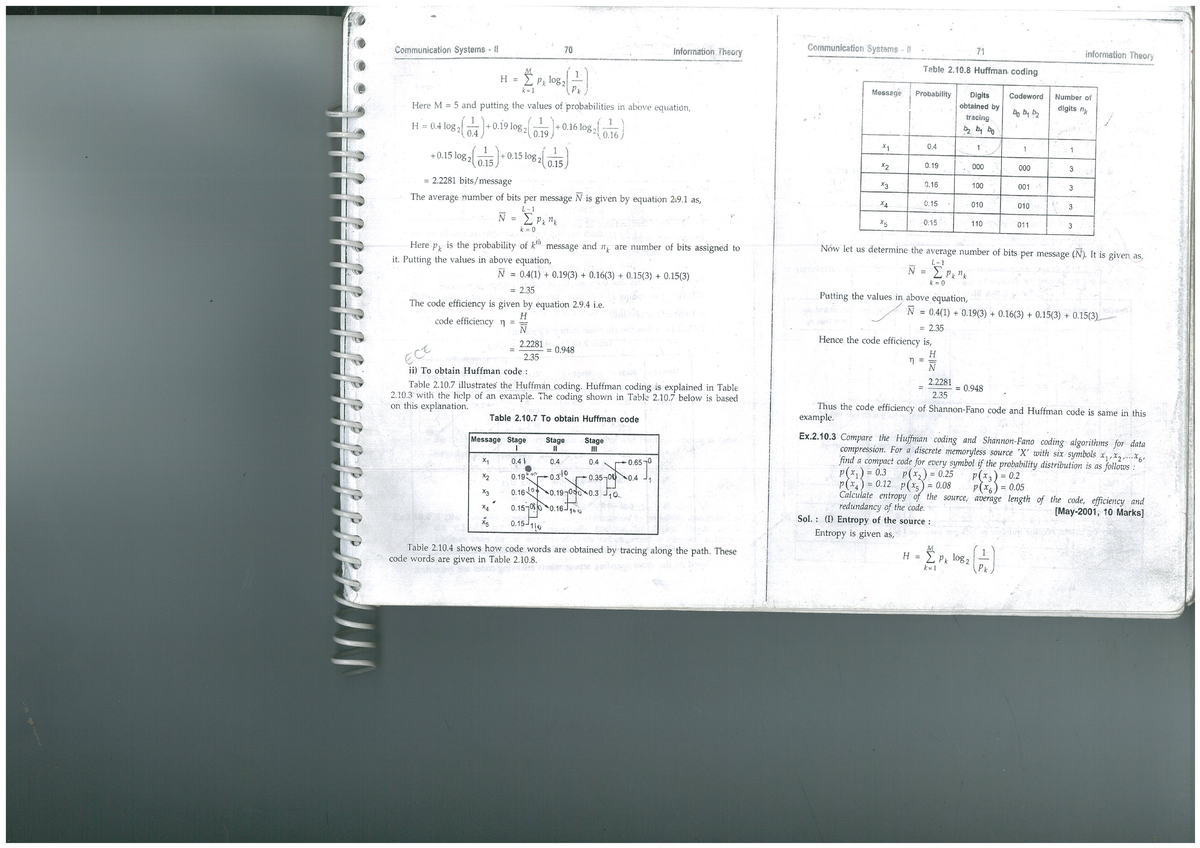 Communication Systems - II 70 Information Theory
H = Σ_{k=1}^{M} p_k log₂(1/p_k)
Here M = 5 and putting the values of probabilities in above equation,
H = 0.4 log₂(1/0.4) + 0.19 log₂(1/0.19) + 0.16 log₂(1/0.16)
+ 0.15 log₂(1/0.15) + 0.15 log₂(1/0.15)
= 2.2281 bits/message
The average number of bits per message N̅ is given by equation 2.9.1 as,
N̅ = Σ_{k=0}^{L-1} p_k n_k
Here p_k is the probability of k^th message and n_k are number of bits assigned to
it. Putting the values in above equation,
N̅ = 0.4(1) + 0.19(3) + 0.16(3) + 0.15(3) + 0.15(3)
= 2.35
The code efficiency is given by equation 2.9.4 i.e.
code efficiency η = H/N̅
= 2.2281/2.35 = 0.948
ECE
ii) To obtain Huffman code :
Table 2.10.7 illustrates the Huffman coding. Huffman coding is explained in Table
2.10.3 with the help of an example. The coding shown in Table 2.10.7 below is based
on this explanation.
Table 2.10.7 To obtain Huffman code
Message Stage I Stage II Stage III
x₁ 0.4 0.4 0.4 0.65 0
x₂ 0.19 0.3 0.35 0.4 1
x₃ 0.16 0.19 0.3
x₄ 0.15 0.16
x₅ 0.15
Table 2.10.4 shows how code words are obtained by tracing along the path. These
code words are given in Table 2.10.8.
Communication Systems - II 71 Information Theory
Table 2.10.8 Huffman coding
Message Probability Digits obtained by tracing b₂ b₁ b₀ Codeword b₀ b₁ b₂ Number of digits n_k
x₁ 0.4 1 1 1
x₂ 0.19 000 000 3
x₃ 0.16 100 001 3
x₄ 0.15 010 010 3
x₅ 0.15 110 011 3
Now let us determine the average number of bits per message (N̅). It is given as,
N̅ = Σ_{k=0}^{L-1} p_k n_k
Putting the values in above equation,
N̅ = 0.4(1) + 0.19(3) + 0.16(3) + 0.15(3) + 0.15(3)
= 2.35
Hence the code efficiency is,
η = H/N̅
= 2.2281/2.35 = 0.948
Thus the code efficiency of Shannon-Fano code and Huffman code is same in this
example.
Ex.2.10.3 Compare the Huffman coding and Shannon-Fano coding algorithms for data
compression. For a discrete memoryless source 'X' with six symbols x₁, x₂,....x₆,
find a compact code for every symbol if the probability distribution is as follows :
p(x₁) = 0.3 p(x₂) = 0.25 p(x₃) = 0.2
p(x₄) = 0.12 p(x₅) = 0.08 p(x₆) = 0.05
Calculate entropy of the source, average length of the code, efficiency and
redundancy of the code. [May-2001, 10 Marks]
Sol. : (I) Entropy of the source :
Entropy is given as,
H = Σ_{k=1}^{M} p_k log₂(1/p_k)